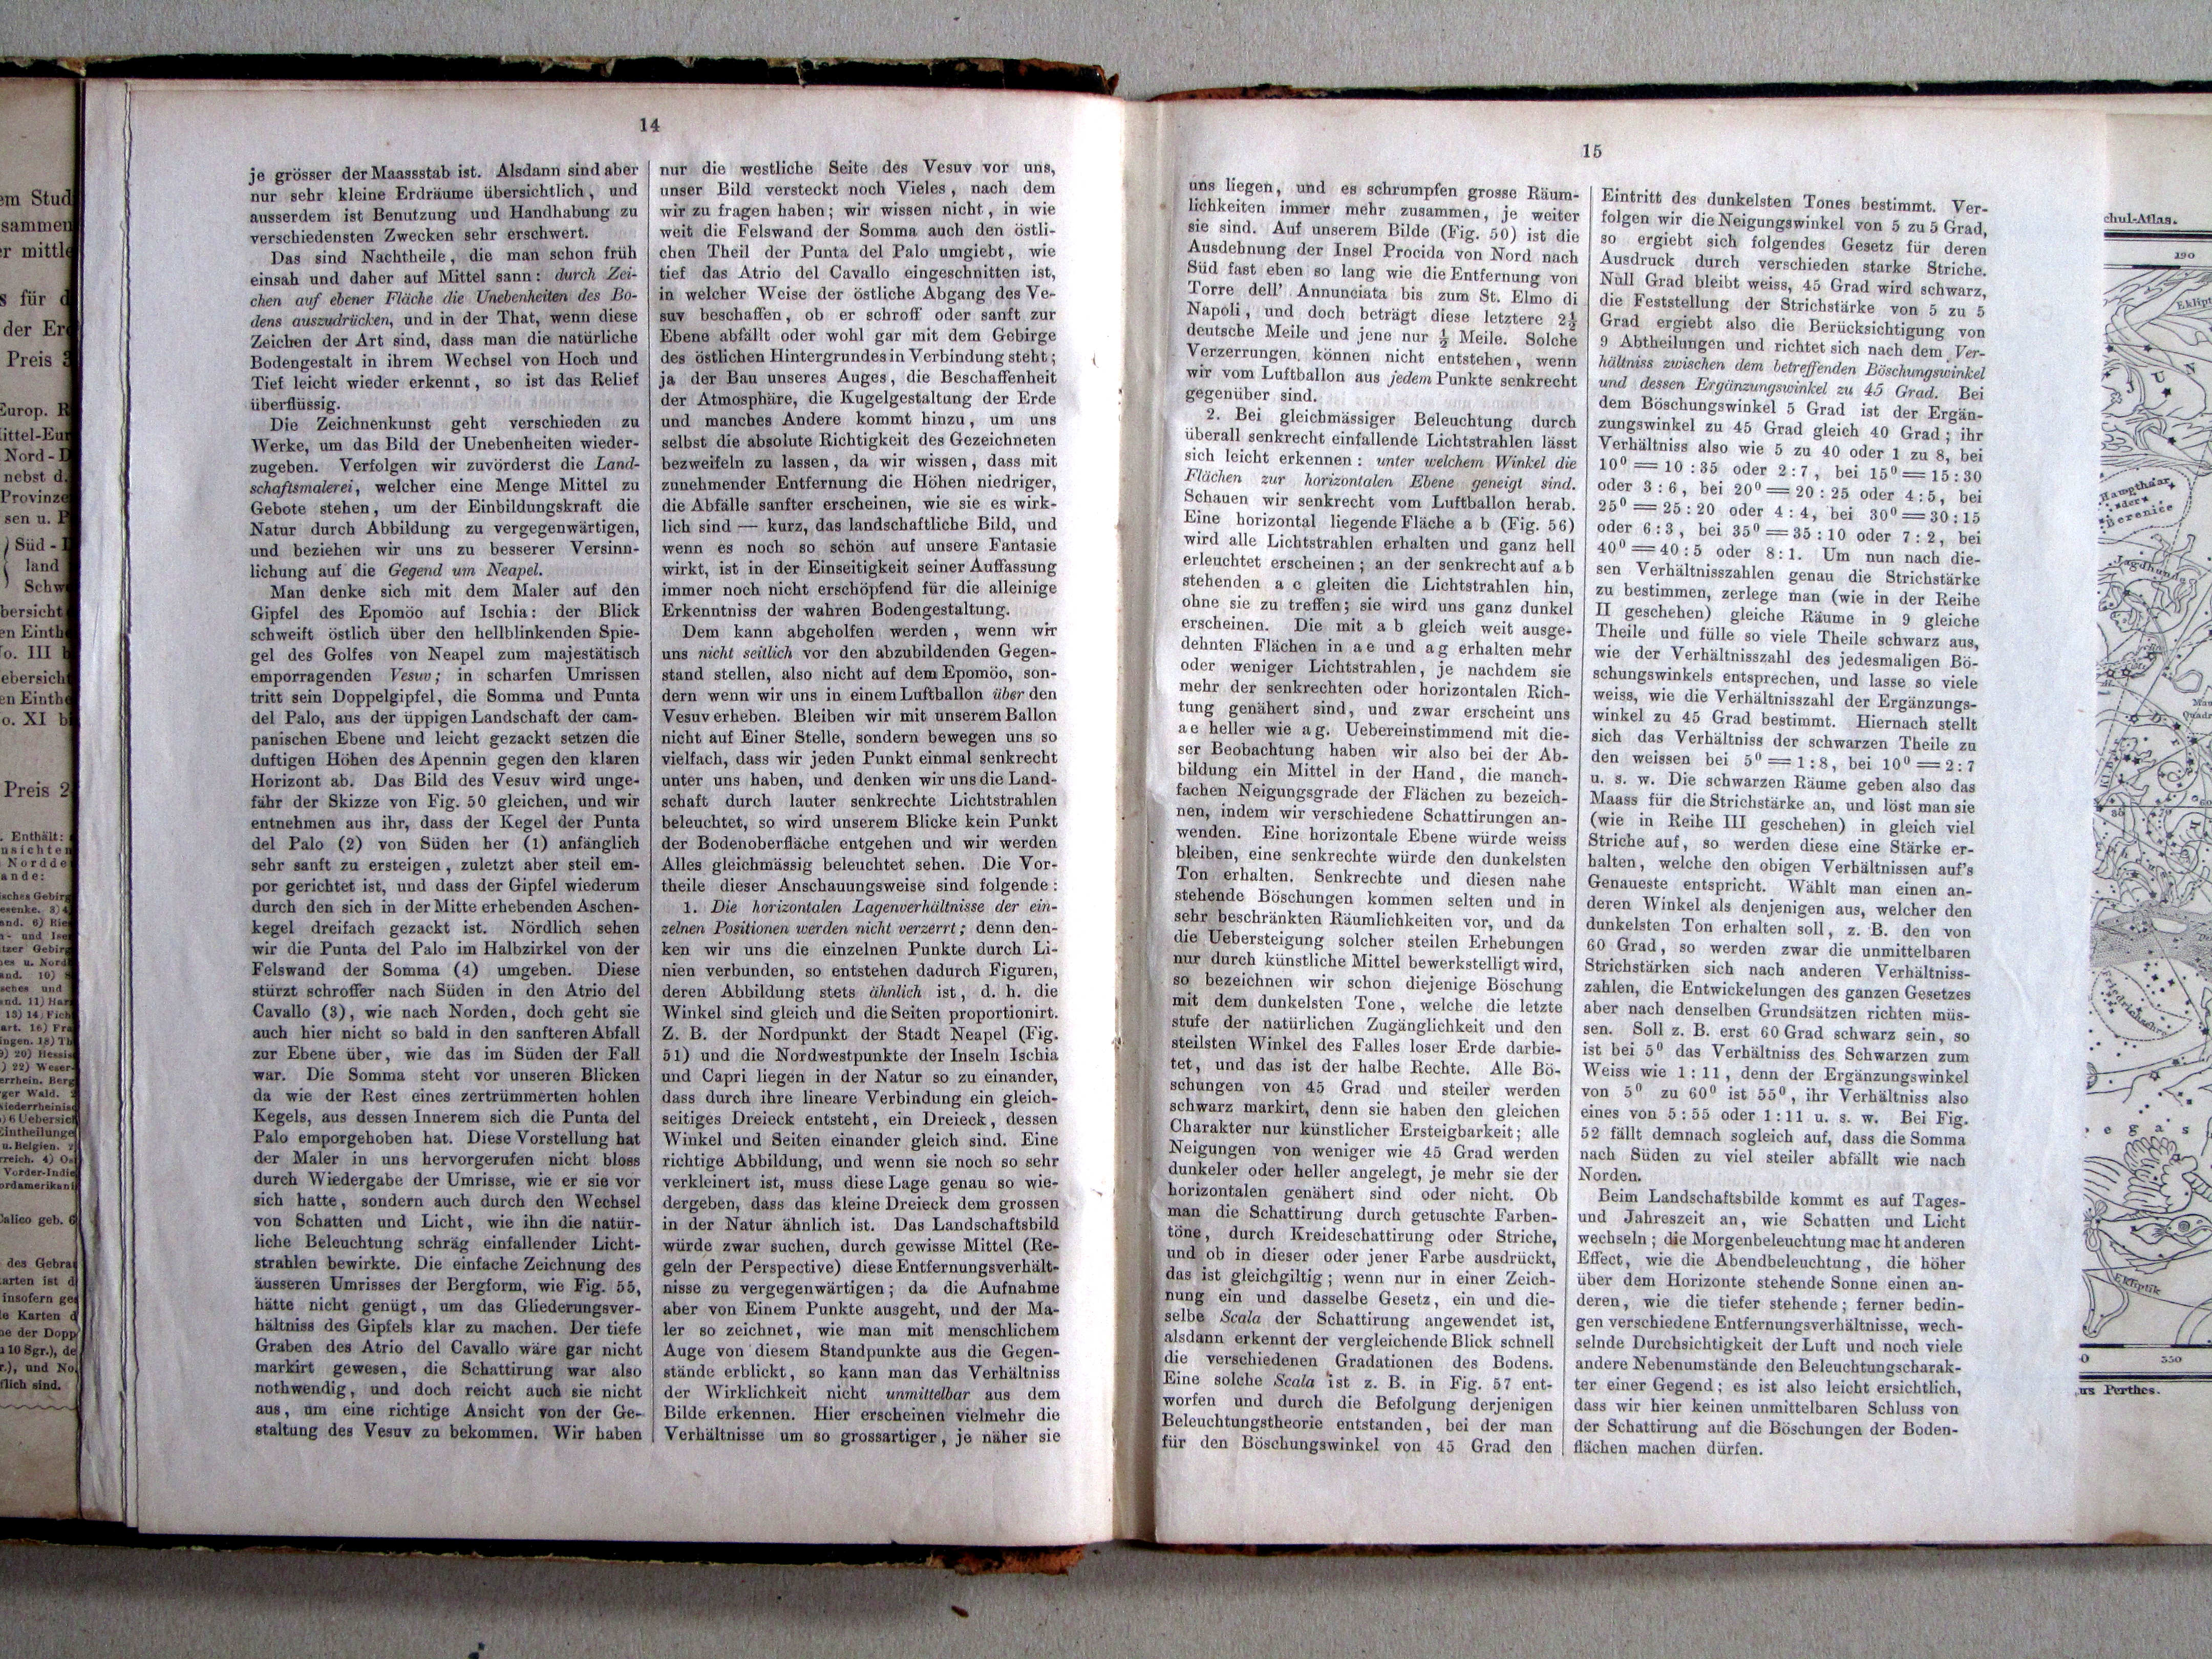 14
je grösser der Maassstab ist. Alsdann sind aber
nur sehr kleine Erdräume übersichtlich, und
ausserdem ist Benutzung und Handhabung zu
verschiedensten Zwecken sehr erschwert.
Das sind Nachtheile, die man schon früh
einsah und daher auf Mittel sann: durch Zei-
chen auf ebener Fläche die Unebenheiten des Bo-
dens auszudrücken, und in der That, wenn diese
Zeichen der Art sind, dass man die natürliche
Bodengestalt in ihrem Wechsel von Hoch und
Tief leicht wieder erkennt, so ist das Relief
überflüssig.
Die Zeichnenkunst geht verschieden zu
Werke, um das Bild der Unebenheiten wieder-
zugeben. Verfolgen wir zuvörderst die Land-
schaftsmalerei, welcher eine Menge Mittel zu
Gebote stehen, um der Einbildungskraft die
Natur durch Abbildung zu vergegenwärtigen,
und beziehen wir uns zu besserer Versinn-
lichung auf die Gegend um Neapel.
Man denke sich mit dem Maler auf den
Gipfel des Epomöo auf Ischia: der Blick
schweift östlich über den hellblinkenden Spie-
gel des Golfes von Neapel zum majestätisch
emporragenden Vesuv; in scharfen Umrissen
tritt sein Doppelgipfel, die Somma und Punta
del Palo, aus der üppigen Landschaft der cam-
panischen Ebene und leicht gezackt setzen die
duftigen Höhen des Apennin gegen den klaren
Horizont ab. Das Bild des Vesuv wird unge-
fähr der Skizze von Fig. 50 gleichen, und wir
entnehmen aus ihr, dass der Kegel der Punta
del Palo (2) von Süden her (1) anfänglich
sehr sanft zu ersteigen, zuletzt aber steil em-
por gerichtet ist, und dass der Gipfel wiederum
durch den sich in der Mitte erhebenden Aschen-
kegel dreifach gezackt ist. Nördlich sehen
wir die Punta del Palo im Halbzirkel von der
Felswand der Somma (4) umgeben. Diese
stürzt schroffer nach Süden in den Atrio del
Cavallo (3), wie nach Norden, doch geht sie
auch hier nicht so bald in den sanfteren Abfall
zur Ebene über, wie das im Süden der Fall
war. Die Somma steht vor unseren Blicken
da wie der Rest eines zertrümmerten hohlen
Kegels, aus dessen Innerem sich die Punta del
Palo emporgehoben hat. Diese Vorstellung hat
der Maler in uns hervorgerufen nicht bloss
durch Wiedergabe der Umrisse, wie er sie vor
sich hatte, sondern auch durch den Wechsel
von Schatten und Licht, wie ihn die natür-
liche Beleuchtung schräg einfallender Licht-
strahlen bewirkte. Die einfache Zeichnung des
äusseren Umrisses der Bergform, wie Fig. 55,
hätte nicht genügt, um das Gliederungsver-
hältniss des Gipfels klar zu machen. Der tiefe
Graben des Atrio del Cavallo wäre gar nicht
markirt gewesen, die Schattirung war also
nothwendig, und doch reicht auch sie nicht
aus, um eine richtige Ansicht von der Ge-
staltung des Vesuv zu bekommen. Wir haben
nur die westliche Seite des Vesuv vor uns,
unser Bild versteckt noch Vieles, nach dem
wir zu fragen haben; wir wissen nicht, in wie
weit die Felswand der Somma auch den östli-
chen Theil der Punta del Palo umgiebt, wie
tief das Atrio del Cavallo eingeschnitten ist,
in welcher Weise der östliche Abgang des Ve-
suv beschaffen, ob er schroff oder sanft zur
Ebene abfällt oder wohl gar mit dem Gebirge
des östlichen Hintergrundes in Verbindung steht;
ja der Bau unseres Auges, die Beschaffenheit
der Atmosphäre, die Kugelgestaltung der Erde
und manches Andere kommt hinzu, um uns
selbst die absolute Richtigkeit des Gezeichneten
bezweifeln zu lassen, da wir wissen, dass mit
zunehmender Entfernung die Höhen niedriger,
die Abfälle sanfter erscheinen, wie sie es wirk-
lich sind — kurz, das landschaftliche Bild, und
wenn es noch so schön auf unsere Fantasie
wirkt, ist in der Einseitigkeit seiner Auffassung
immer noch nicht erschöpfend für die alleinige
Erkenntniss der wahren Bodengestaltung.
Dem kann abgeholfen werden, wenn wir
uns nicht seitlich vor den abzubildenden Gegen-
stand stellen, also nicht auf dem Epomöo, son-
dern wenn wir uns in einem Luftballon über den
Vesuv erheben. Bleiben wir mit unserem Ballon
nicht auf Einer Stelle, sondern bewegen uns so
vielfach, dass wir jeden Punkt einmal senkrecht
unter uns haben, und denken wir uns die Land-
schaft durch lauter senkrechte Lichtstrahlen
beleuchtet, so wird unserem Blicke kein Punkt
der Bodenoberfläche entgehen und wir werden
Alles gleichmässig beleuchtet sehen. Die Vor-
theile dieser Anschauungsweise sind folgende:
1. Die horizontalen Lagenverhältnisse der ein-
zelnen Positionen werden nicht verzerrt; denn den-
ken wir uns die einzelnen Punkte durch Li-
nien verbunden, so entstehen dadurch Figuren,
deren Abbildung stets ähnlich ist, d. h. die
Winkel sind gleich und die Seiten proportionirt.
Z. B. der Nordpunkt der Stadt Neapel (Fig.
51) und die Nordwestpunkte der Inseln Ischia
und Capri liegen in der Natur so zu einander,
dass durch ihre lineare Verbindung ein gleich-
seitiges Dreieck entsteht, ein Dreieck, dessen
Winkel und Seiten einander gleich sind. Eine
richtige Abbildung, und wenn sie noch so sehr
verkleinert ist, muss diese Lage genau so wie-
dergeben, dass das kleine Dreieck dem grossen
in der Natur ähnlich ist. Das Landschaftsbild
würde zwar suchen, durch gewisse Mittel (Re-
geln der Perspective) diese Entfernungsverhält-
nisse zu vergegenwärtigen; da die Aufnahme
aber von Einem Punkte ausgeht, und der Ma-
ler so zeichnet, wie man mit menschlichem
Auge von diesem Standpunkte aus die Gegen-
stände erblickt, so kann man das Verhältniss
der Wirklichkeit nicht unmittelbar aus dem
Bilde erkennen. Hier erscheinen vielmehr die
Verhältnisse um so grossartiger, je näher sie
15
uns liegen, und es schrumpfen grosse Räum-
lichkeiten immer mehr zusammen, je weiter
sie sind. Auf unserem Bilde (Fig. 50) ist die
Ausdehnung der Insel Procida von Nord nach
Süd fast eben so lang wie die Entfernung von
Torre dell' Annunciata bis zum St. Elmo di
Napoli, und doch beträgt diese letztere 2½
deutsche Meile und jene nur ½ Meile. Solche
Verzerrungen können nicht entstehen, wenn
wir vom Luftballon aus jedem Punkte senkrecht
gegenüber sind.
2. Bei gleichmässiger Beleuchtung durch
überall senkrecht einfallende Lichtstrahlen lässt
sich leicht erkennen: unter welchem Winkel die
Flächen zur horizontalen Ebene geneigt sind.
Schauen wir senkrecht vom Luftballon herab.
Eine horizontal liegende Fläche a b (Fig. 56)
wird alle Lichtstrahlen erhalten und ganz hell
erleuchtet erscheinen; an der senkrecht auf a b
stehenden a c gleiten die Lichtstrahlen hin,
ohne sie zu treffen; sie wird uns ganz dunkel
erscheinen. Die mit a b gleich weit ausge-
dehnten Flächen in a e und a g erhalten mehr
oder weniger Lichtstrahlen, je nachdem sie
mehr der senkrechten oder horizontalen Rich-
tung genähert sind, und zwar erscheint uns
a e heller wie a g. Uebereinstimmend mit die-
ser Beobachtung haben wir also bei der Ab-
bildung ein Mittel in der Hand, die manch-
fachen Neigungsgrade der Flächen zu bezeich-
nen, indem wir verschiedene Schattirungen an-
wenden. Eine horizontale Ebene würde weiss
bleiben, eine senkrechte würde den dunkelsten
Ton erhalten. Senkrechte und diesen nahe
stehende Böschungen kommen selten und in
sehr beschränkten Räumlichkeiten vor, und da
die Uebersteigung solcher steilen Erhebungen
nur durch künstliche Mittel bewerkstelligt wird,
so bezeichnen wir schon diejenige Böschung
mit dem dunkelsten Tone, welche die letzte
stufe der natürlichen Zugänglichkeit und den
steilsten Winkel des Falles loser Erde darbie-
tet, und das ist der halbe Rechte. Alle Bö-
schungen von 45 Grad und steiler werden
schwarz markirt, denn sie haben den gleichen
Charakter nur künstlicher Ersteigbarkeit; alle
Neigungen von weniger wie 45 Grad werden
dunkeler oder heller angelegt, je mehr sie der
horizontalen genähert sind oder nicht. Ob
man die Schattirung durch getuschte Farben-
töne, durch Kreideschattirung oder Striche,
und ob in dieser oder jener Farbe ausdrückt,
das ist gleichgiltig; wenn nur in einer Zeich-
nung ein und dasselbe Gesetz, ein und die-
selbe Scala der Schattirung angewendet ist,
alsdann erkennt der vergleichende Blick schnell
die verschiedenen Gradationen des Bodens.
Eine solche Scala ist z. B. in Fig. 57 ent-
worfen und durch die Befolgung derjenigen
Beleuchtungstheorie entstanden, bei der man
für den Böschungswinkel von 45 Grad den
Eintritt des dunkelsten Tones bestimmt. Ver-
folgen wir die Neigungswinkel von 5 zu 5 Grad,
so ergiebt sich folgendes Gesetz für deren
Ausdruck durch verschieden starke Striche.
Null Grad bleibt weiss, 45 Grad wird schwarz,
die Feststellung der Strichstärke von 5 zu 5
Grad ergiebt also die Berücksichtigung von
9 Abtheilungen und richtet sich nach dem Ver-
hältniss zwischen dem betreffenden Böschungswinkel
und dessen Ergänzungswinkel zu 45 Grad. Bei
dem Böschungswinkel 5 Grad ist der Ergän-
zungswinkel zu 45 Grad gleich 40 Grad; ihr
Verhältniss also wie 5 zu 40 oder 1 zu 8, bei
10⁰ = 10 : 35 oder 2 : 7, bei 15⁰ = 15 : 30
oder 3 : 6, bei 20⁰ = 20 : 25 oder 4 : 5, bei
25⁰ = 25 : 20 oder 4 : 4, bei 30⁰ = 30 : 15
oder 6 : 3, bei 35⁰ = 35 : 10 oder 7 : 2, bei
40⁰ = 40 : 5 oder 8 : 1. Um nun nach die-
sen Verhältnisszahlen genau die Strichstärke
zu bestimmen, zerlege man (wie in der Reihe
II geschehen) gleiche Räume in 9 gleiche
Theile und fülle so viele Theile schwarz aus,
wie der Verhältnisszahl des jedesmaligen Bö-
schungswinkels entsprechen, und lasse so viele
weiss, wie die Verhältnisszahl der Ergänzungs-
winkel zu 45 Grad bestimmt. Hiernach stellt
sich das Verhältniss der schwarzen Theile zu
den weissen bei 5⁰ = 1 : 8, bei 10⁰ = 2 : 7
u. s. w. Die schwarzen Räume geben also das
Maass für die Strichstärke an, und löst man sie
(wie in Reihe III geschehen) in gleich viel
Striche auf, so werden diese eine Stärke er-
halten, welche den obigen Verhältnissen auf's
Genaueste entspricht. Wählt man einen an-
deren Winkel als denjenigen aus, welcher den
dunkelsten Ton erhalten soll, z. B. den von
60 Grad, so werden zwar die unmittelbaren
Strichstärken sich nach anderen Verhältniss-
zahlen, die Entwickelungen des ganzen Gesetzes
aber nach denselben Grundsätzen richten müs-
sen. Soll z. B. erst 60 Grad schwarz sein, so
ist bei 5⁰ das Verhältniss des Schwarzen zum
Weiss wie 1 : 11, denn der Ergänzungswinkel
von 5⁰ zu 60⁰ ist 55⁰, ihr Verhältniss also
eines von 5 : 55 oder 1 : 11 u. s. w. Bei Fig.
52 fällt demnach sogleich auf, dass die Somma
nach Süden zu viel steiler abfällt wie nach
Norden.
Beim Landschaftsbilde kommt es auf Tages-
und Jahreszeit an, wie Schatten und Licht
wechseln; die Morgenbeleuchtung macht anderen
Effect, wie die Abendbeleuchtung, die höher
über dem Horizonte stehende Sonne einen an-
deren, wie die tiefer stehende; ferner bedin-
gen verschiedene Entfernungsverhältnisse, wech-
selnde Durchsichtigkeit der Luft und noch viele
andere Nebenumstände den Beleuchtungscharak-
ter einer Gegend; es ist also leicht ersichtlich,
dass wir hier keinen unmittelbaren Schluss von
der Schattirung auf die Böschungen der Boden-
flächen machen dürfen.
chul-Atlas.
290
Haupthaar
der
Berenice
Jagdhunde
Friedrichsehre
e g a s
Ekliptik
350
Perthes.